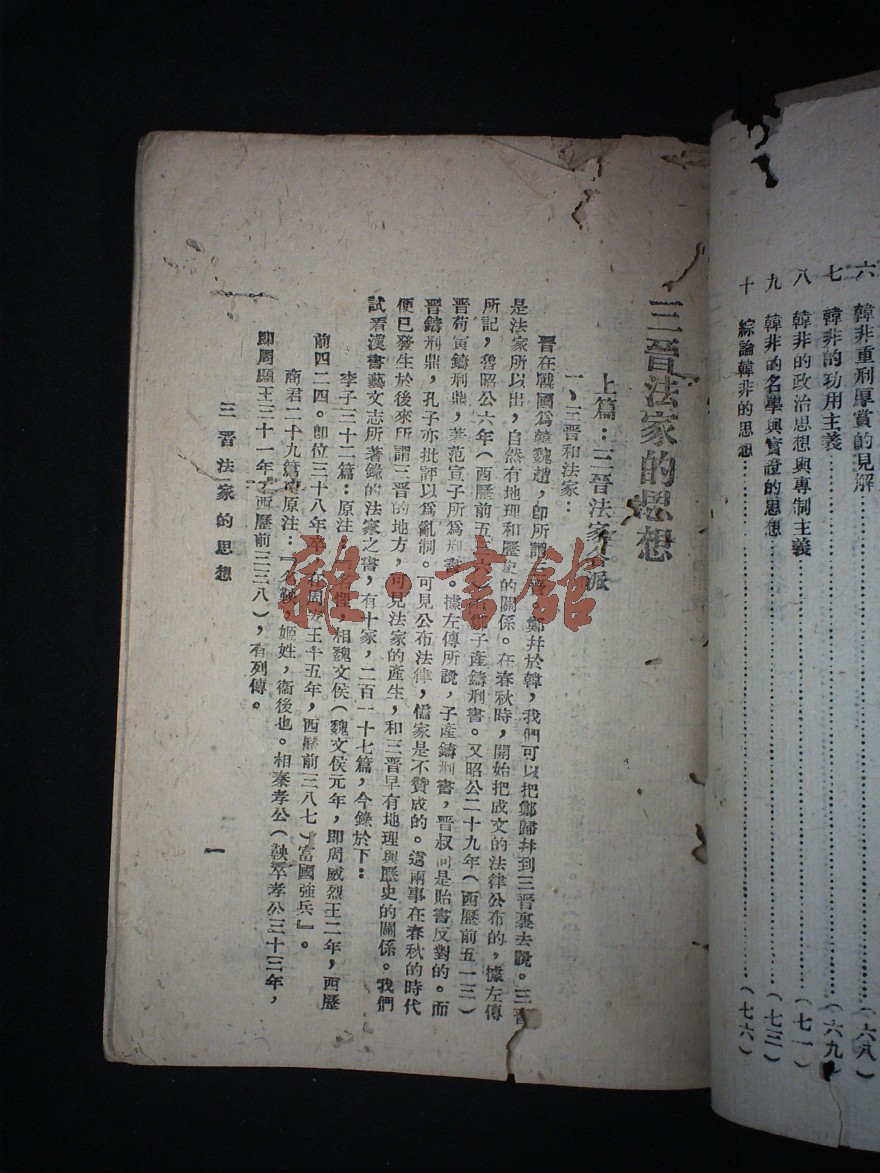 六 韓非重刑厚賞的見解……(六八)
七 韓非的功用主義……(六九)
八 韓非的政治思想與專制主義……(七一)
九 韓非的名學與實證的思想……(七三)
十 綜論韓非的思想……(七六)
三晉法家的思想
上篇：三晉法家各派
一、三晉和法家：
晉在戰國爲韓魏趙，卽所謂三晉。鄭幷於韓，我們可以把鄭歸幷到三晉裏去說。三晉
是法家所以出，自然有地理和歷史的關係。在春秋時，開始把成文的法律公布的，據左傳
所記，魯昭公六年(西歷前五 六 子產鑄刑書。又昭公二十九年(西歷前五一三)
晉荀寅鑄刑鼎，著范宣子所爲刑書。據左傳所說，子產鑄刑書，晉叔向是貽書反對的。而
晉鑄刑鼎，孔子亦批評以爲亂制。可見公布法律，儒家是不贊成的。這兩事在春秋的時代
便已發生於後來所謂三晉的地方，可見法家的產生，和三晉早有地理與歷史的關係。我們
試看漢書藝文志所著錄的法家之書，有十家，二百一十七篇，今錄於下：
李子三十二篇：原注 名悝，相魏文侯(魏文侯元年，卽周威烈王二年，西歷
前四二四。卽位三十八年卒，在周安王十五年，西歷前三八七)富國強兵』。
商君二十九篇 原注：『名鞅，姬姓，衞後也。相秦孝公(鞅卒孝公三十三年，
卽周顯王三十一年，西歷前三三八)，有列傳。
三晉法家的思想
一
雜·書館